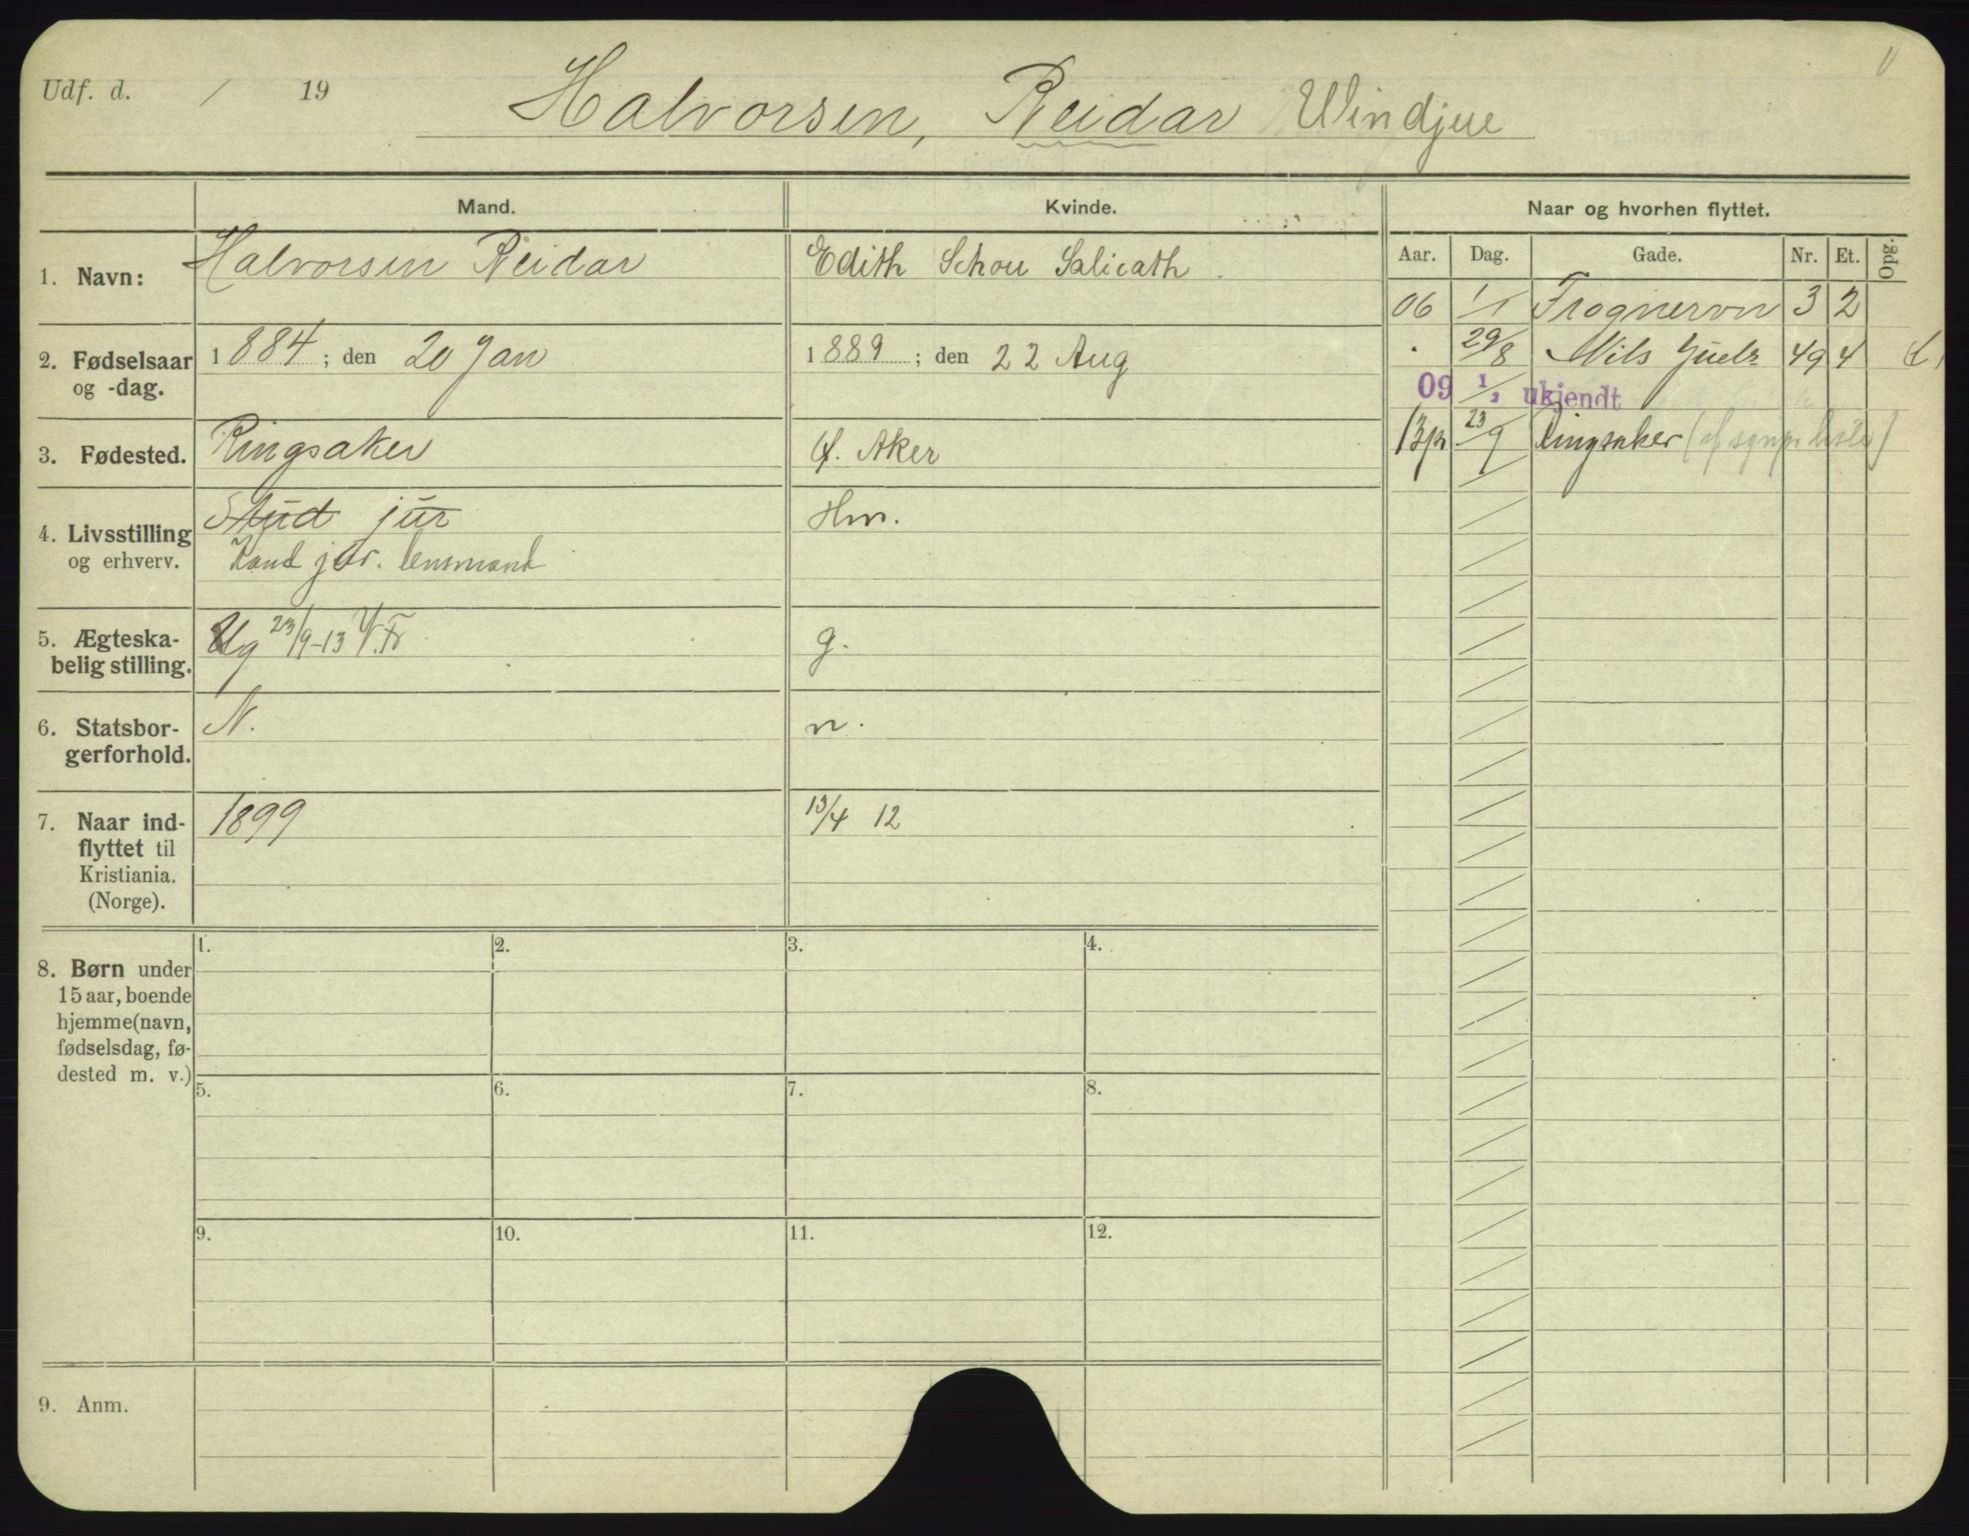 Udf. d. / 19
Halvorsen, Reidar Windjue
Mand. Kvinde. Naar og hvorhen flyttet.
Aar. Dag. Gade. Nr. Et. Opg.
1. Navn: Halvorsen Reidar Edith Schou Salicath
06 1/1 Frognervn 3 2
2. Fødselsaar og -dag. 1884; den 20 Jan 1889; den 22 Aug
29/8 Nils Juels 49 4
09 1/2 ukjendt
3. Fødested. Ringsaker Ø. Aker
13 23/9 Ringsaker
4. Livsstilling og erhverv. Stud jur Hm.
Kand jur. lensmand
5. Ægteska-
belig stilling. Ug 23/9-13 V. Fr g.
6. Statsbor-
gerforhold. N. n.
7. Naar ind-
flyttet til
Kristiania.
(Norge). 1899 13/4 12
8. Børn under
15 aar, boende
hjemme(navn,
fødselsdag, fø-
dested m. v.)
1. 2. 3. 4.
5. 6. 7. 8.
9. 10. 11. 12.
9. Anm.